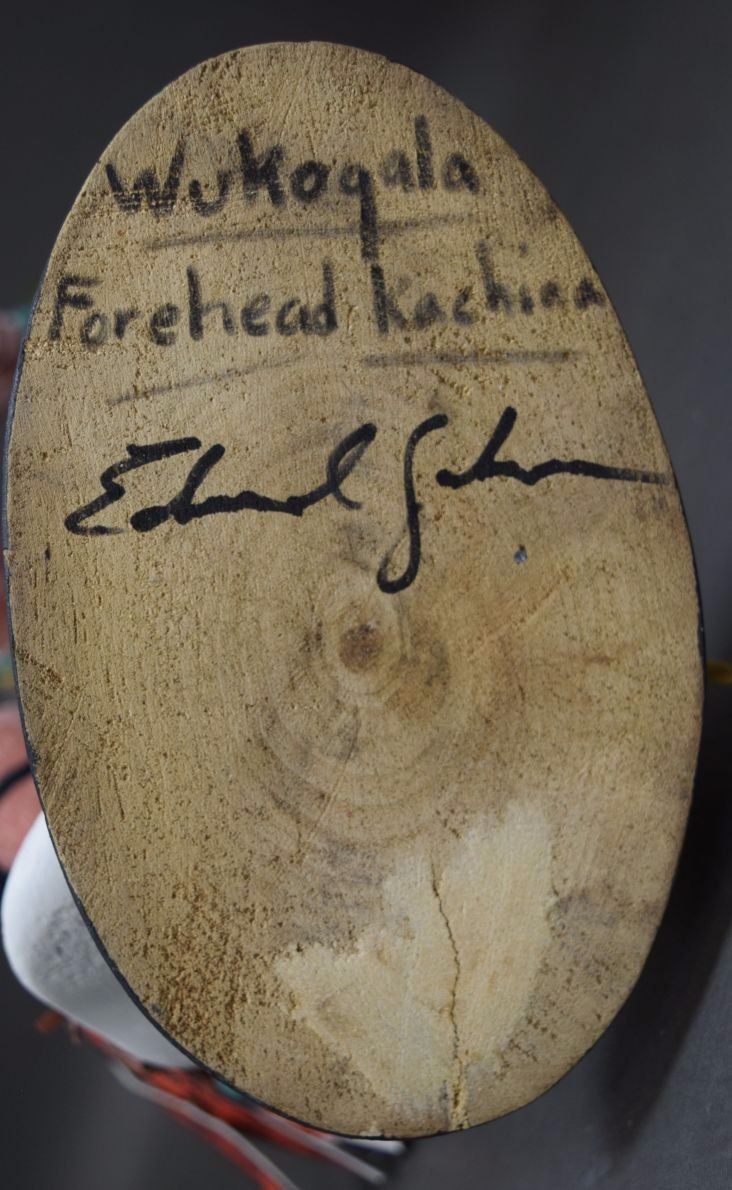 Wukoqala
Forehead Kachina
Edward